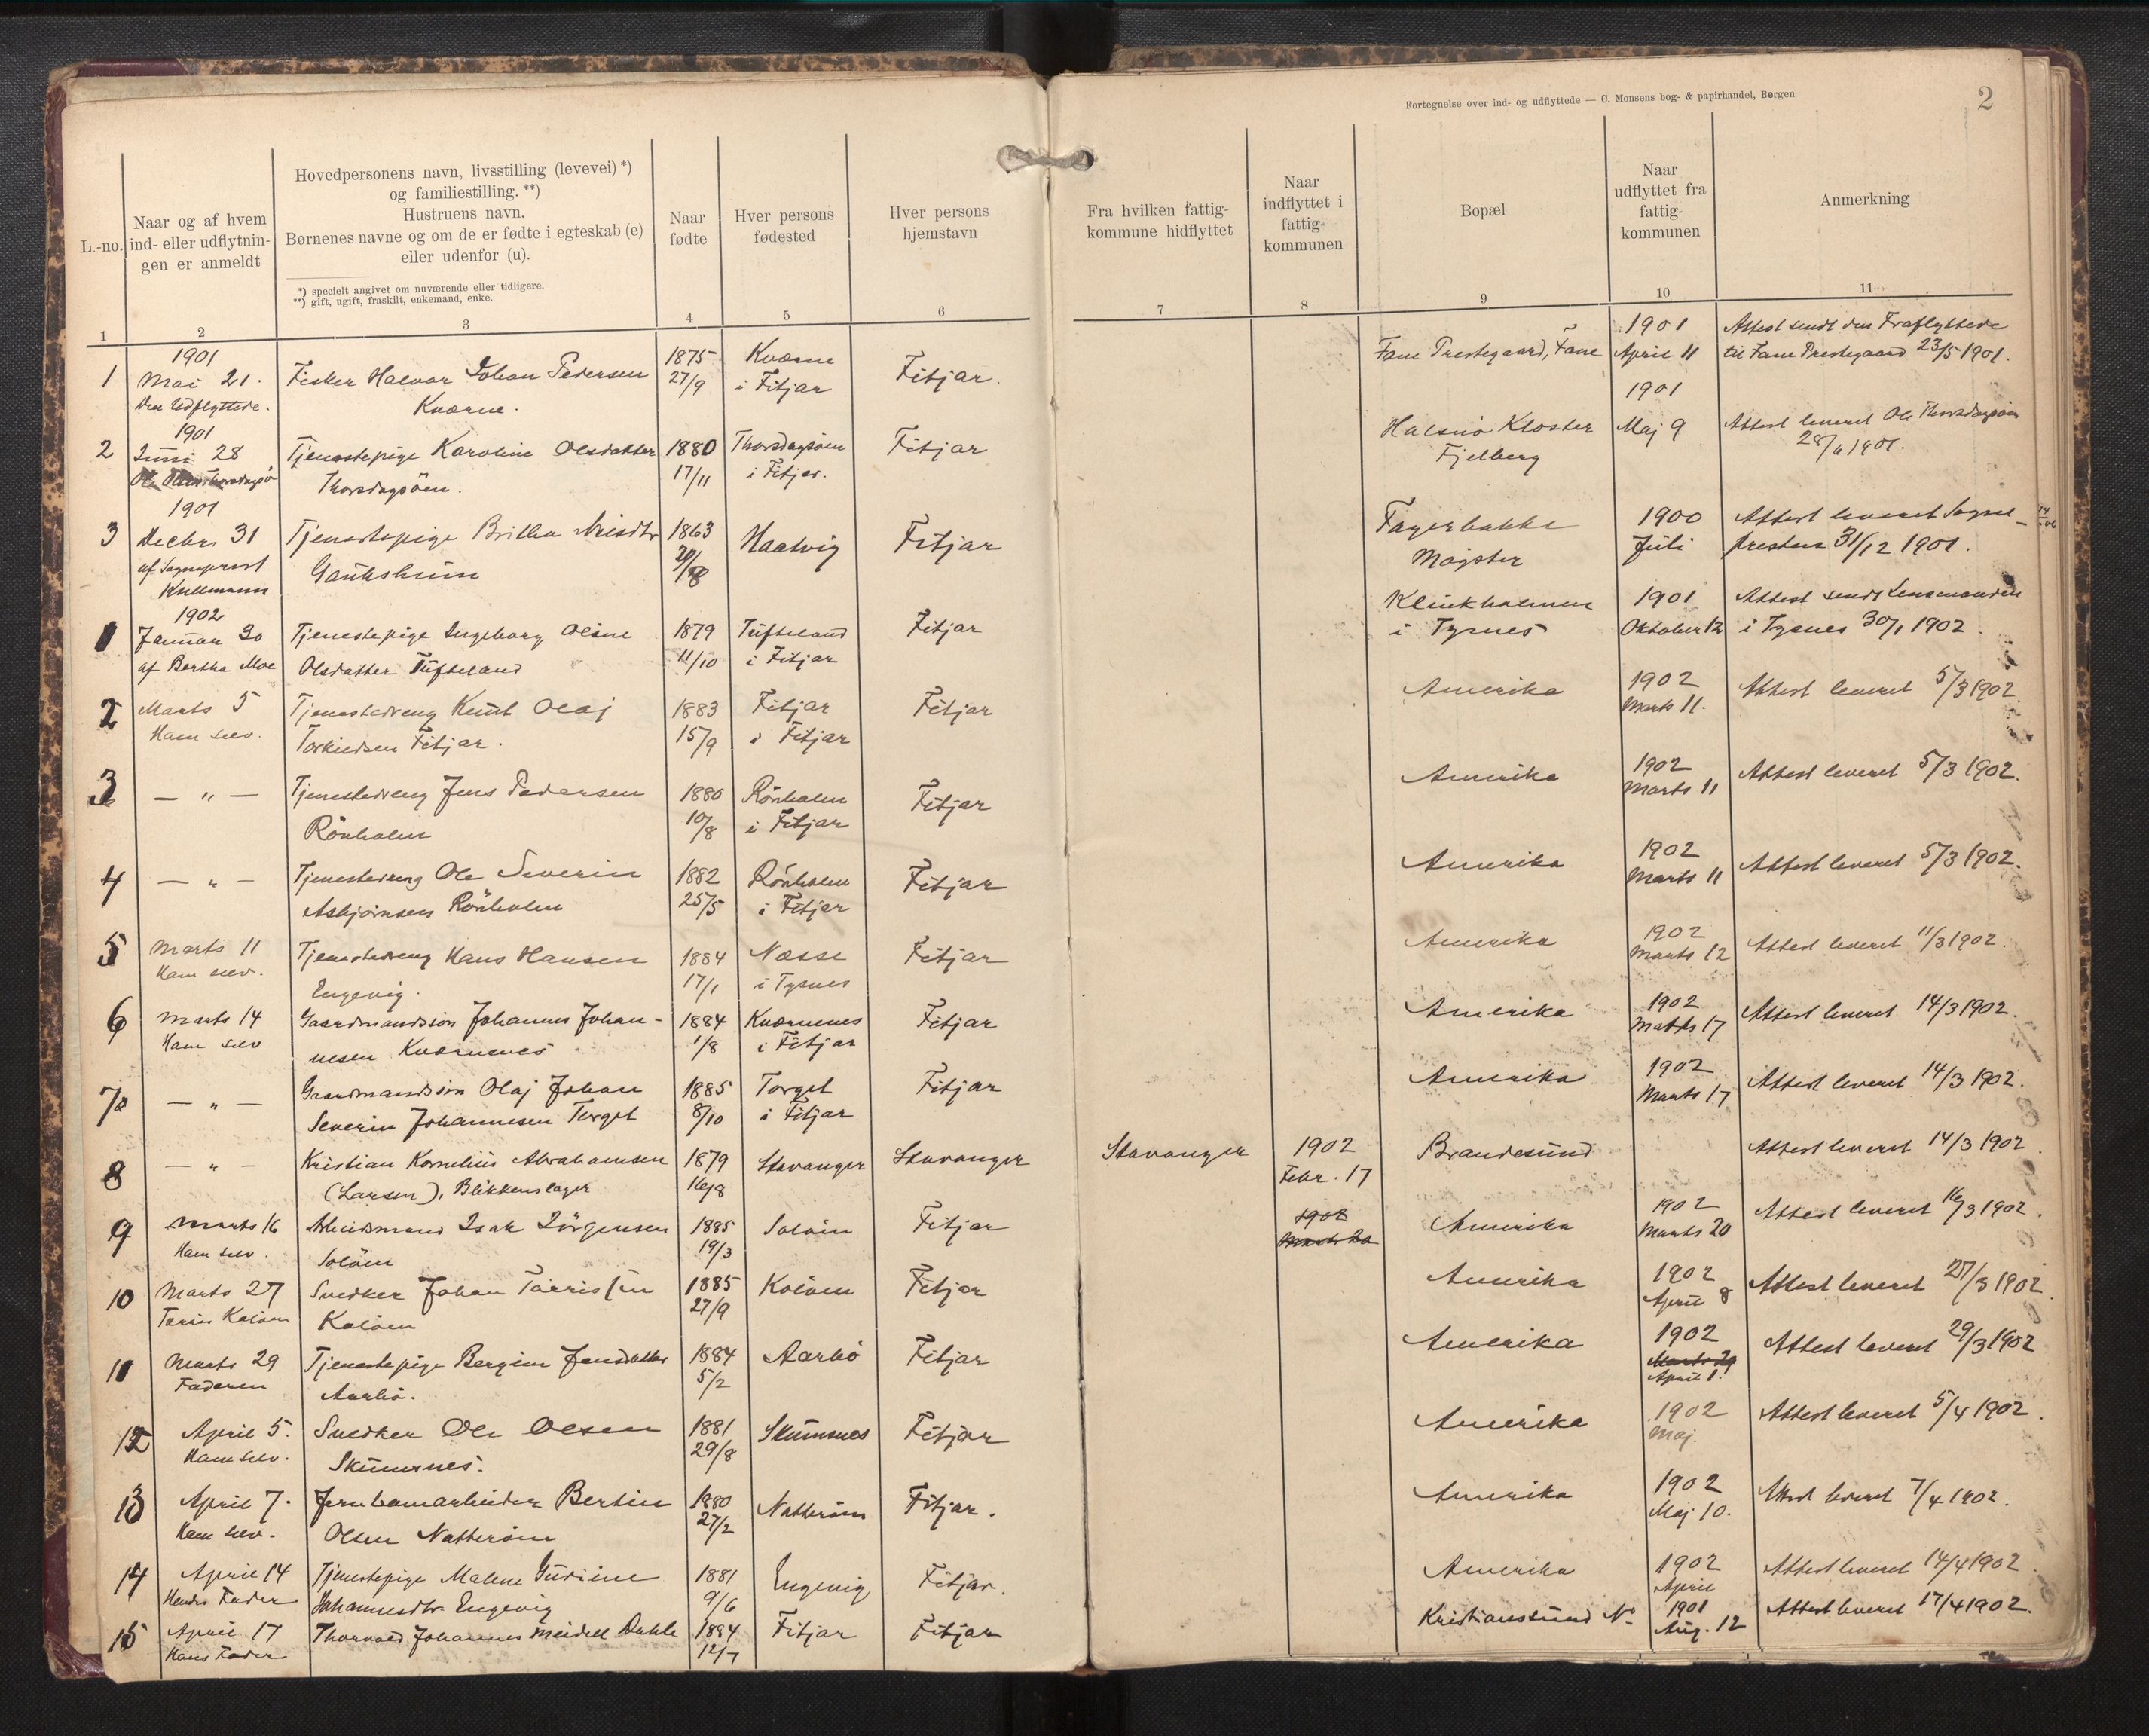 Fortegnelse over ind- og udflyttede — C. Monsens bog- & papirhandel, Bergen
2
L.-no.
Naar og af hvem
ind- eller udflytnin-
gen er anmeldt
Hovedpersonens navn, livsstilling (levevei) *)
og familiestilling. **)
Hustruens navn.
Børnenes navne og om de er fødte i egteskab (e)
eller udenfor (u).
*) specielt angivet om nuværende eller tidligere.
**) gift, ugift, fraskilt, enkemand, enke.
Naar
fødte
Hver persons
fødested
Hver persons
hjemstavn
Fra hvilken fattig-
kommune hidflyttet
Naar
indflyttet i
fattig-
kommunen
Bopæl
Naar
udflyttet fra
fattig-
kommunen
Anmerkning
1 2 3 4 5 6 7 8 9 10 11
1901 1875 Kværne 1901 Attest sendt den Fraflyttede
1 Mai 21. Fisker Halvor Johan Pedersen 27/9 i Fitjar Fitjar. Fane Prestegaard, Fane April 11 til Fane Prestegaard 23/5 1901.
Den Udflyttede. Kværne.
1901 1901
2 Juni 28 Tjenestepige Karoline Olsdatter 1880 Thorsdagsøen Fitjar Halsnø Kloster Maj 9 Attest leveret Ole Thorsdagsøen
Thorsdagsøen. 17/11 i Fitjar. Fjelberg 28/6 1901.
1901
3 Decbr 31 Tjenestepige Britha Nilsdtr 1863 Haatvig Fitjar Fagerbakke 1900 Attest leveret Sogne-
af Sogneprest Gauksheim Møgster Juli presten 31/12 1901.
Kullmann
1902
1 Januar 30 Tjenestepige Ingeborg Oline 1879 Tufteland Fitjar Klinkholmen 1901 Attest sendt Lensmanden
af Bertha Moe Olsdatter Tufteland 11/10 i Fitjar i Tysnes Oktober 12 i Tysnes 30/1 1902.
2 Marts 5 Tjenestedreng Knut Olaj 1883 Fitjar Fitjar Amerika 1902 Attest leveret 5/3 1902
Ham selv. Torkildsen Fitjar. 15/9 i Fitjar Marts 11.
3 — " — Tjenestedreng Jens Pedersen 1880 Rönholm Fitjar Amerika 1902 Attest leveret 5/3 1902.
Rönholm 10/8 i Fitjar Marts 11
4 — " — Tjenestedreng Ole Severin 1882 Rönholm Fitjar Amerika 1902 Attest leveret 5/3 1902.
Asbjørnsen Rönholm 25/5 i Fitjar Marts 11
5 Marts 11 Tjenestedreng Hans Hansen 1884 Næsse Fitjar Amerika 1902 Attest leveret 11/3 1902.
Ham selv. Engevig. 17/1 i Tysnes Marts 12
6 Marts 14 Gaardmandssøn Johannes Johan- 1884 Kværnenes Fitjar Amerika 1902 Attest leveret 14/3 1902.
Ham selv nesen Kværnenes 1/8 i Fitjar Marts 17
7 — " — Gaardmandssøn Olaj Johan 1885 Torget Fitjar Amerika 1902 Attest leveret 14/3 1902.
Severin Johannesen Torget 8/10 i Fitjar Marts 17
8 — " — Kristian Kornelius Abrahamsen 1879 Stavanger Stavanger Stavanger 1902 Brandesund Attest leveret 14/3 1902
(Larsen), Blikkenslager 16/8 Febr. 17
9 Marts 16 Arbeidsmand Isak Jörgensen 1885 Soløen Fitjar 1902 Amerika 1902 Attest leveret 16/3 1902.
Ham selv. Soløen 19/3 Marts 20 Marts 20
10 Marts 27 Snedker Johan Tørrissen 1885 Koløen Fitjar Amerika 1902 Attest leveret 27/3 1902.
Tørris Koløen Koløen 27/9 April 8
11 Marts 29 Tjenestepige Bergine Jensdatter 1884 Aarbø Fitjar Amerika 1902 Attest leveret 29/3 1902
Faderen Aarbø. 5/2 Marts 29
April 1.
12 April 5. Snedker Ole Olsen 1881 Skumsnes Fitjar Amerika 1902 Attest leveret 5/4 1902.
Ham selv. Skumsnes. 29/8 Maj.
13 April 7. Jernbanearbeider Bertin 1880 Natterøen Fitjar. Amerika 1902 Attest leveret 7/4 1902.
Ham selv. Olsen Natterøen 27/2 Maj 10.
14 April 14 Tjenestepige Malene Gurine 1881 Engevig Fitjar. Amerika 1902 Attest leveret 14/4 1902.
Hendes Fader Johannesdtr Engevig 9/6 April
15 April 17 Thorvald Johannes Meidell Dahle 1884 Fitjar Fitjar Kristianssund N. 1901 Attest leveret 17/4 1902.
Hans Fader 12/7 Aug. 12